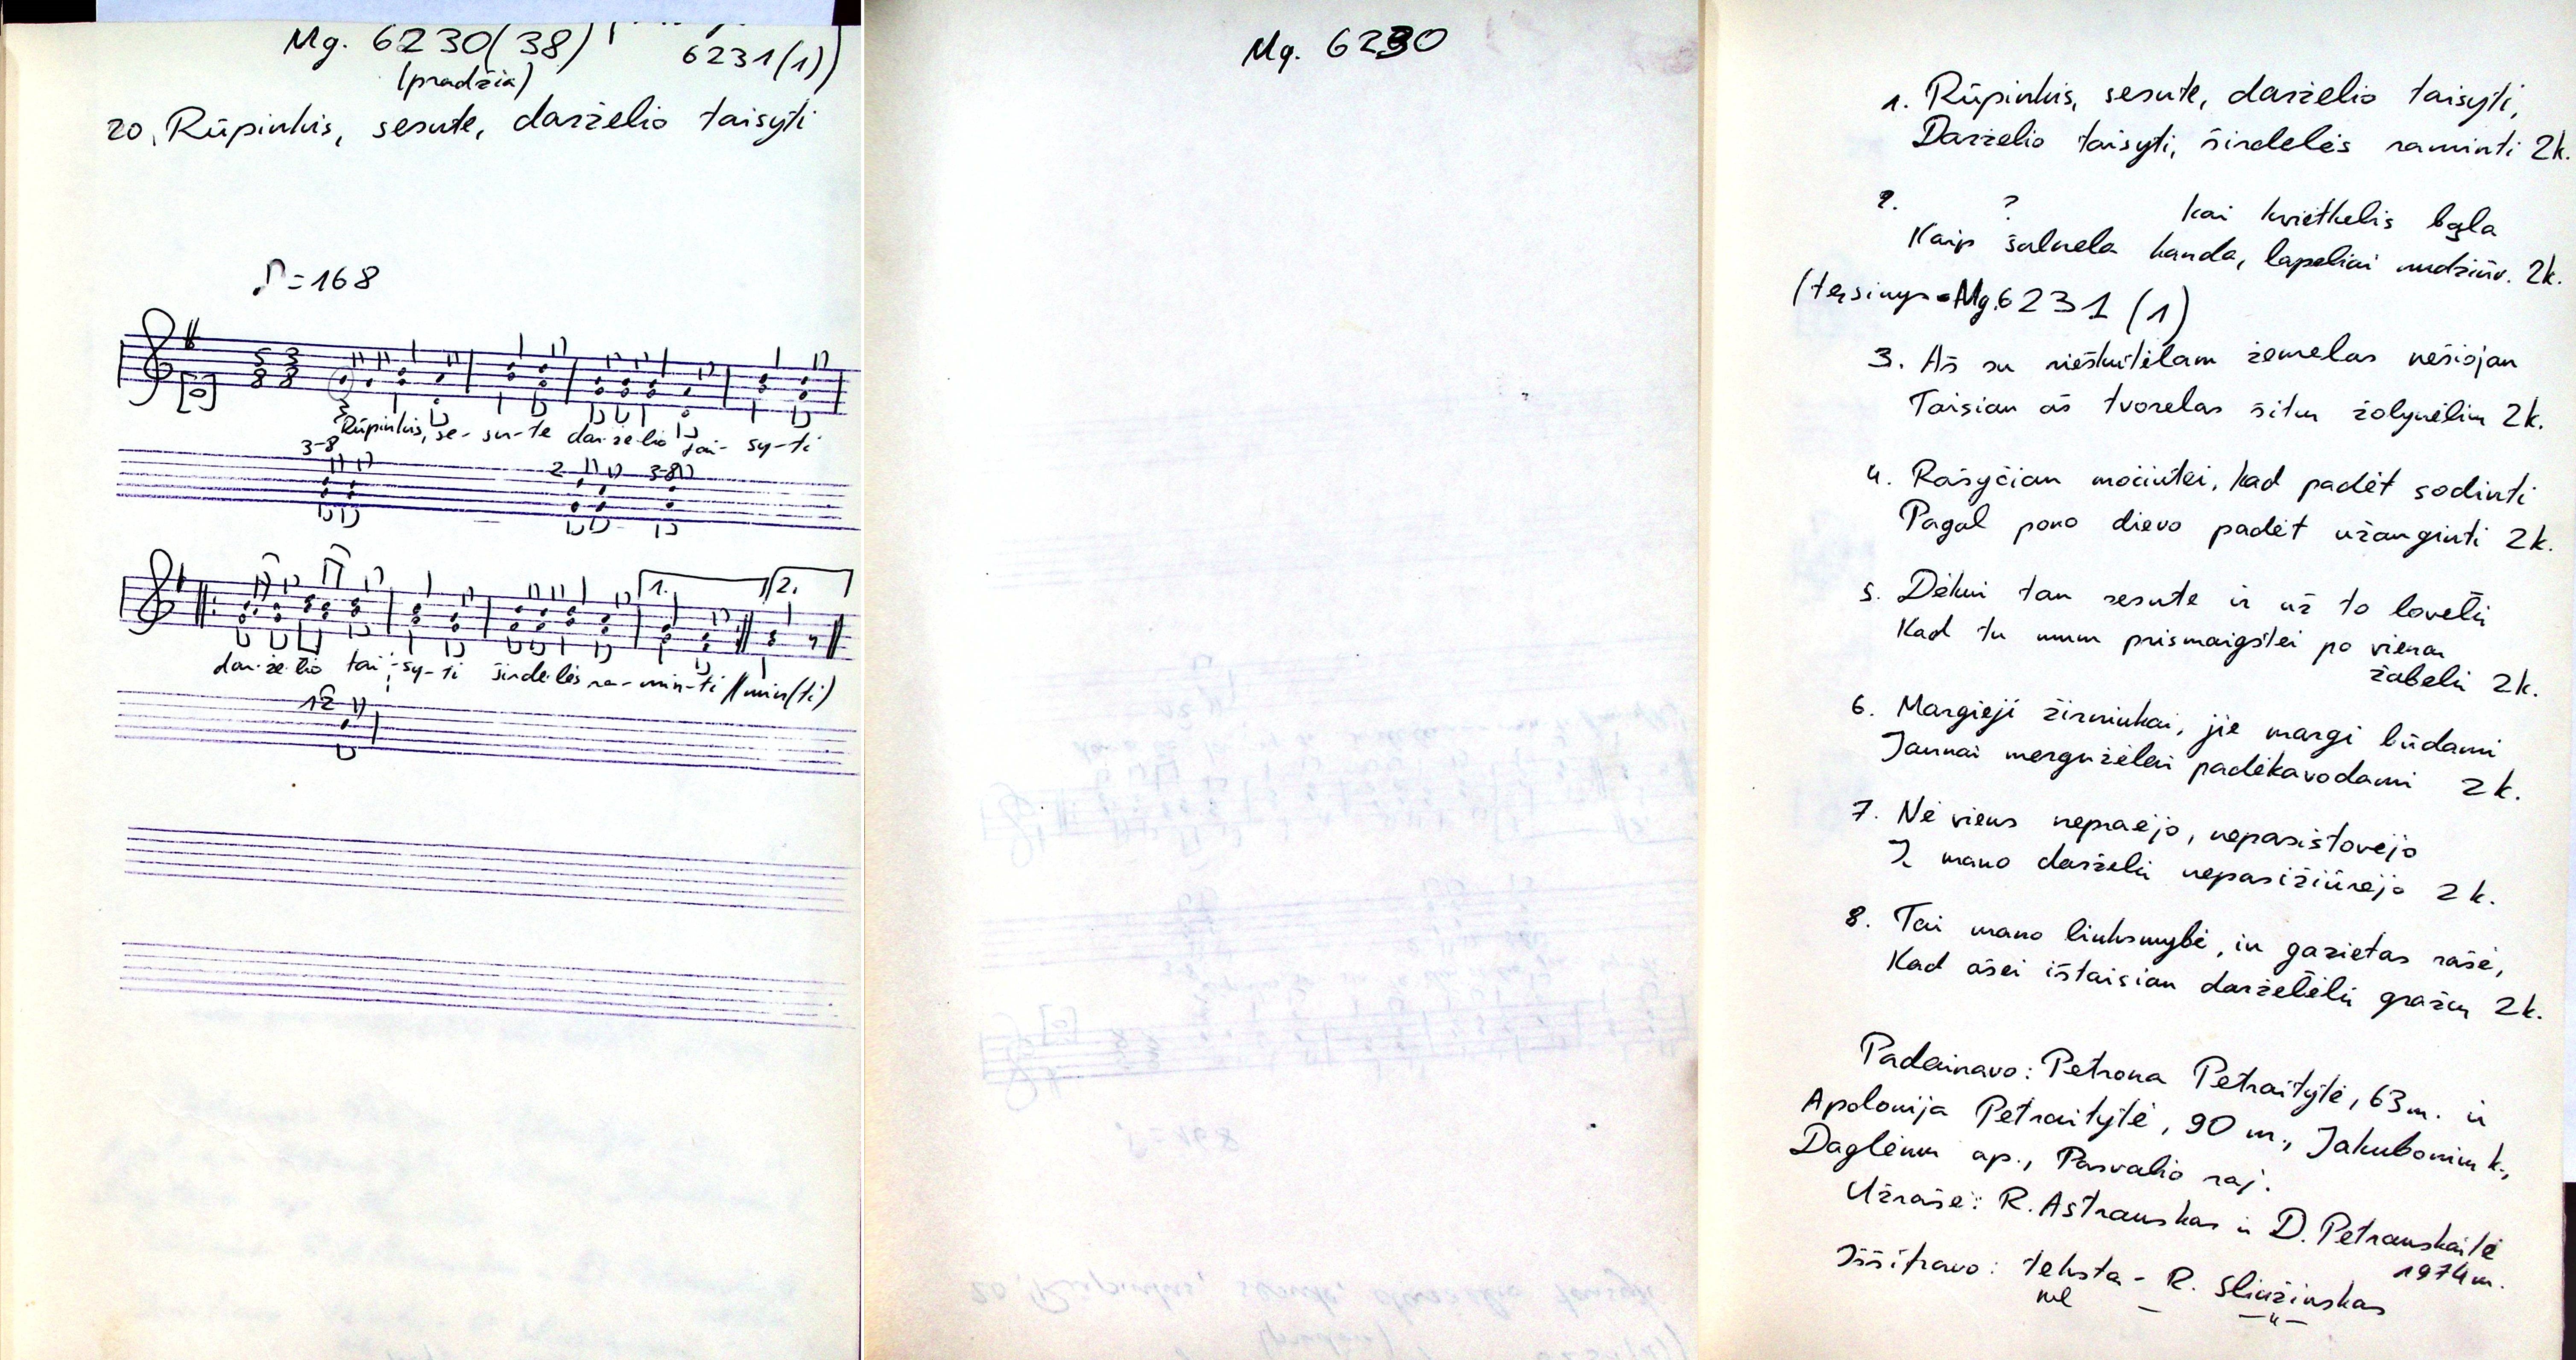 Mg. 6230(38)
6231(1))
(pradžia)
20. Rūpinkis, sesute, darželio taisyti
♪=168
5 3
8 8
Rūpinkis, se- su-te dar-že-lio tai- sy-ti
3-8
2 3-8
1. 2.
dar-že-lio tai-sy-ti širdelės ra-min-ti // min(ti)
12
Mg. 6230
1. Rūpinkis, sesute, darželio taisyti,
Darželio taisyti, širdelės raminti 2k.
2. ? kai kvietkelis bąla
Kaip šalnela kanda, lapeliai nudžiūv. 2k.
(tęsinys Mg. 6231 (1)
3. Aš su rieškutėlam žemelas nešiojau
Taisiau aš tvorelas šitų žolynėlių 2k.
4. Rašyčiau močiutei, kad padėt sodinti
Pagal pono dievo padėt užauginti 2k.
5. Dėkui tau sesute ir už to lovelį
Kad tu mum prismaigstei po vieną
žabelį 2k.
6. Margieji žirniukai, jie margi būdami
Jaunai mergužėlei padėkavodami 2k.
7. Nė viens nepraėjo, nepasistovėjo
Į mano darželį nepasižiūrėjo 2k.
8. Tai mano linksmybė, in gazietas rašė,
Kad ašei ištaisiau darželėlį gražų 2k.
Padainavo: Petronė Petraitytė, 63m. ir
Apolonija Petraitytė, 90 m., Jakubonių k.,
Daglėnų ap., Pasvalio raj.
Užrašė: R. Astrauskas ir D. Petrauskaitė
1974m.
Iššifravo: tekstą - R. Sliužinskas
mel — — " —